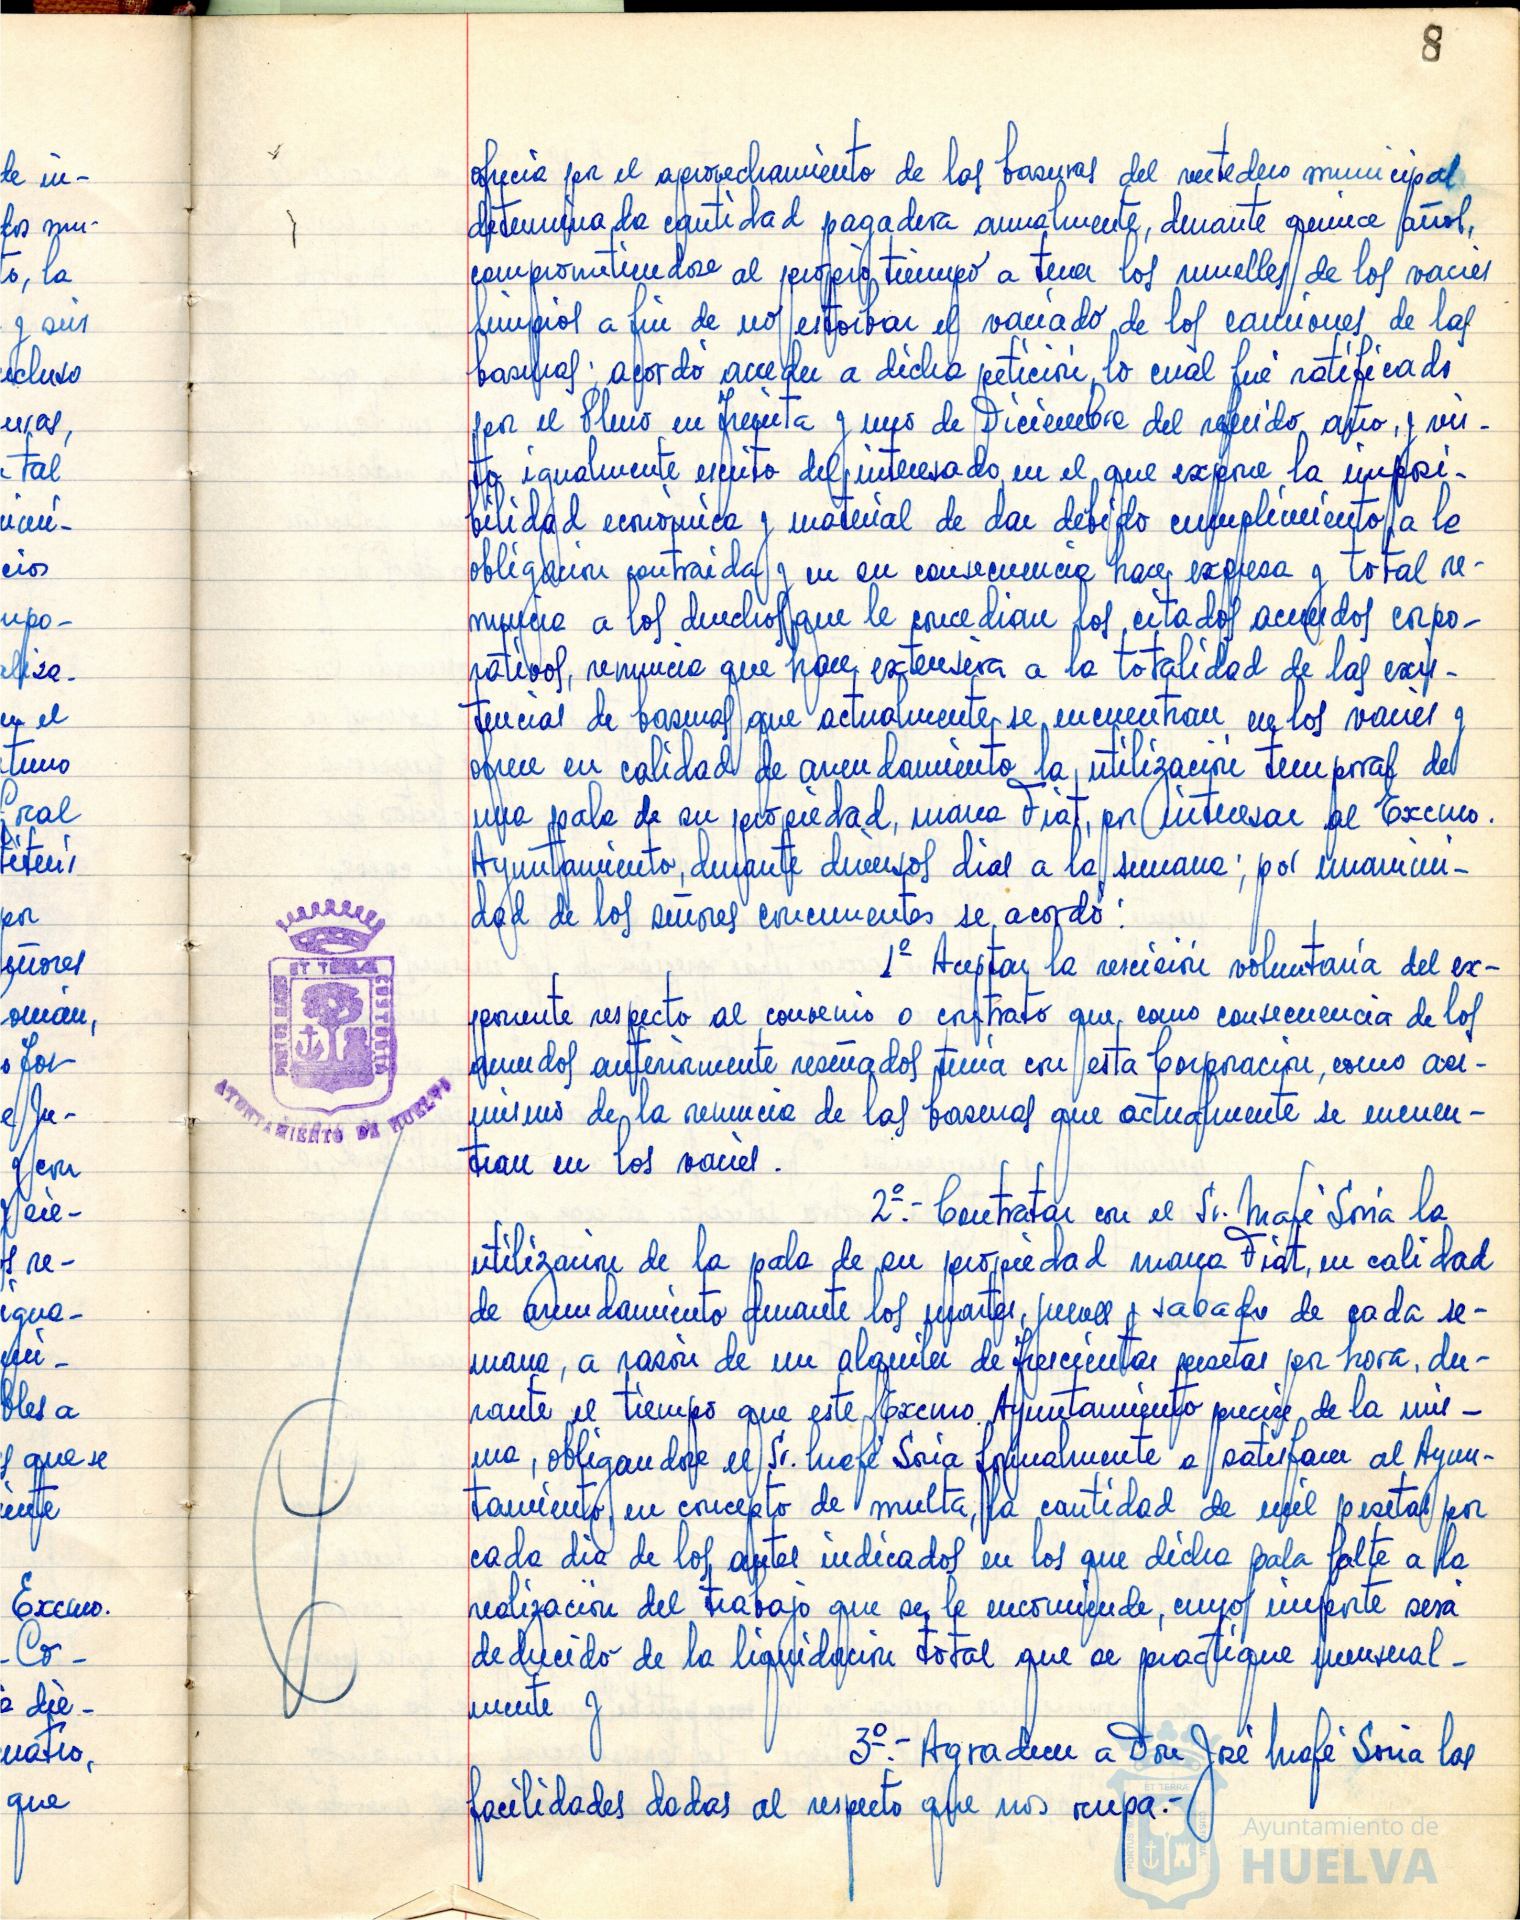 8
ofrecía por el aprovechamiento de las basuras del vertedero municipal
determinada cantidad pagadera anualmente, durante quince años,
comprometiendose al propio tiempo a tener los muelles de los vacies
limpios a fin de no estorbar el vaciado de los camiones de las
basuras; acordó acceder a dicha petición, lo cual fué ratificado
por el Pleno en Treinta y uno de Diciembre del referido año, y vis-
to igualmente escrito del interesado en el que expone la imposi-
bilidad económica y material de dar debido cumplimiento a la
obligación contraida y en su consecuencia hace expresa y total re-
nuncia a los derechos que le concedian los citados acuerdos corpo-
rativos, renuncia que hace extensiva a la totalidad de las exis-
tencias de basuras que actualmente se encuentran en los vacies y
ofrece en calidad de arrendamiento la utilización temporal de
una pala de su propiedad, marca Fiat, por interesar al Excmo.
Ayuntamiento, durante diversos dias a la semana; por unanimi-
dad de los señores concurrentes se acordó:
1º Aceptar la rescisión voluntaria del ex-
ponente respecto al convenio o contrato que como consecuencia de los
acuerdos anteriormente reseñados tenía con esta Corporación, como asi-
mismo de la renuncia de las basuras que actualmente se encuen-
tran en los vacies.
2º.- Contratar con el Sr. Mafé Soria la
utilización de la pala de su propiedad marca Fiat, en calidad
de arrendamiento durante los martes, jueves y sabado de cada se-
mana, a rasón de un alquiler de trescientas pesetas por hora, du-
rante el tiempo que este Excmo. Ayuntamiento precise de la mis-
ma, obligandose el Sr. Mafé Soria formalmente a satisfacer al Ayun-
tamiento, en concepto de multa, la cantidad de mil pesetas por
cada dia de los antes indicados en los que dicha pala falte a la
realización del trabajo que se le encomiende, cuyos importe será
deducido de la liquidación total que se practique mensual-
mente y
3º.- Agradecer a Don José Mafé Soria las
facilidades dadas al respecto que nos ocupa.-
ET TERRAE CUSTODIA
AYUNTAMIENTO DE HUELVA
Ayuntamiento de
HUELVA